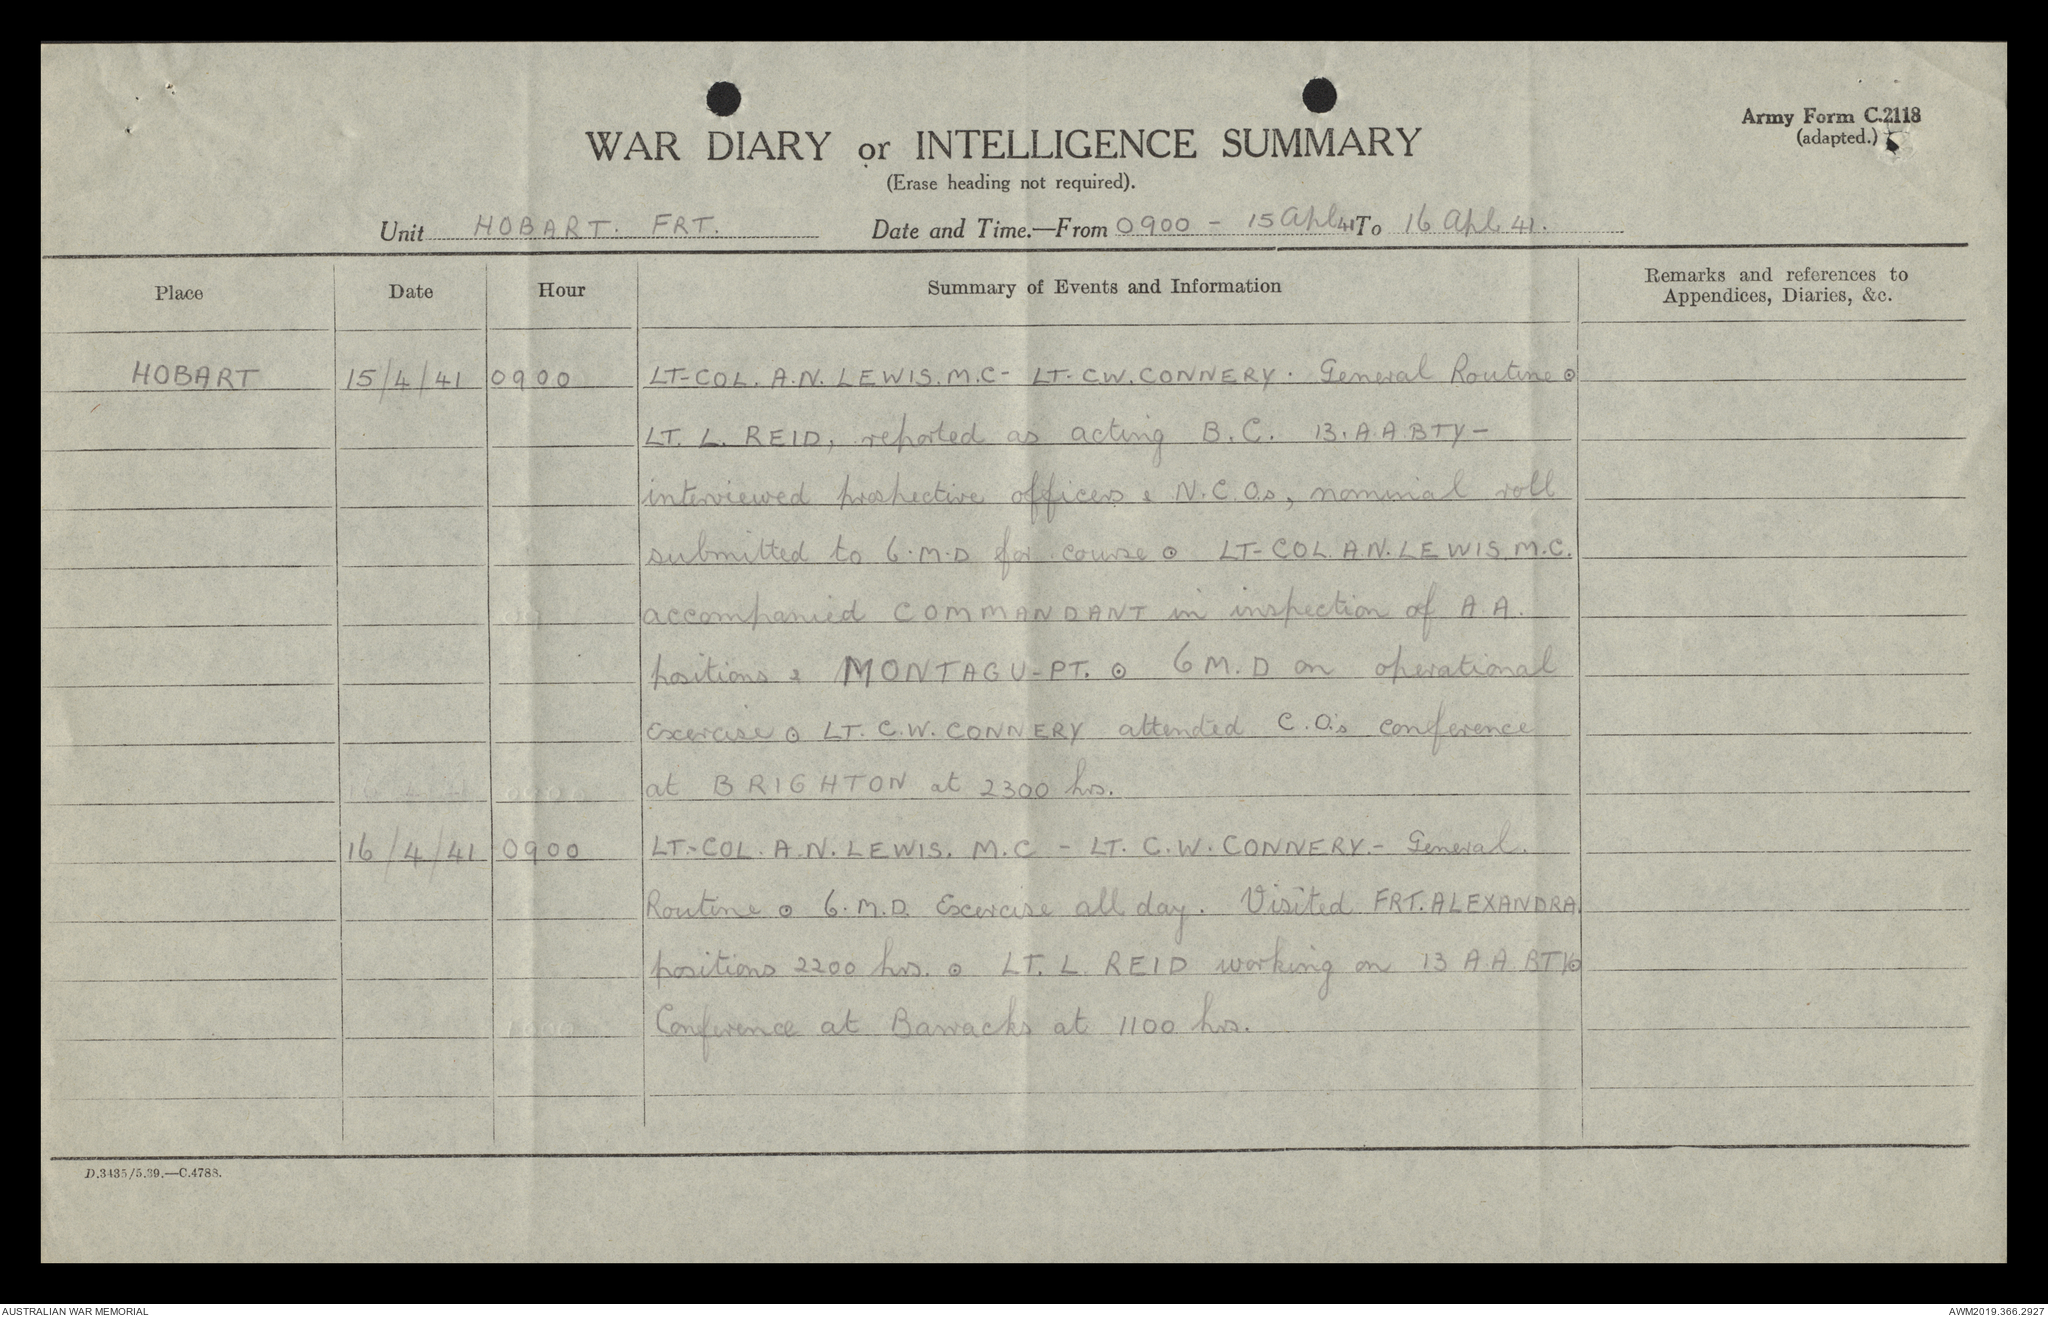 Army Form C.2118
(adapted.)
WAR DIARY or INTELLIGENCE SUMMARY
(Erase heading not required).
Unit HOBART. FRT. Date and Time.—From 0900 - 15 Apl 41 To 16 Apl. 41.
Place Date Hour Summary of Events and Information Remarks and references to
Appendices, Diaries, &c.
HOBART 15/4/41 0900 LT-COL. A.N. LEWIS. M.C - LT. C.W. CONNERY. General Routine ⊙
LT. L. REID, reported as acting B.C. 13. A.A. BTY -
interviewed prospective officers & N.C.Os, nominal roll
submitted to 6.M.D for course ⊙ LT-COL. A.N. LEWIS M.C.
accompanied COMMANDANT in inspection of A.A.
positions & MONTAGU-PT. ⊙ 6 M.D on operational
Exercise ⊙ LT. C.W. CONNERY attended C.O's conference
at BRIGHTON at 2300 hrs.
16/4/41 0900 LT-COL. A.N. LEWIS. M.C - LT. C.W. CONNERY. - General.
Routine ⊙ 6.M.D. Exercise all day. Visited FRT. ALEXANDRA
positions 2200 hrs. ⊙ LT. L. REID working on 13 A.A. BTY ⊙
Conference at Barracks at 1100 hrs.
D.3435/5.39.—C.4788.
AUSTRALIAN WAR MEMORIAL AWM2019.366.2927